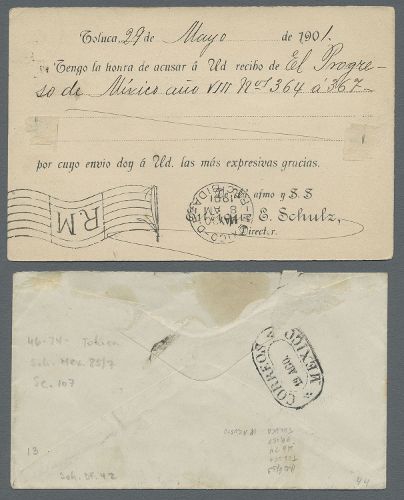 Toluca, 29 de Mayo de 1901.
Tengo la honra de acusar á Ud recibo de El Progre-
so de México año VIII Nos 364 á 367
por cuyo envio doy á Ud. las más expresivas gracias.
afmo y S. S
E. Schulz,
Director.
R.M
8 AM
1901
CORREOS
MEXICO
19 AGO.
46-74- Toluca
Sch. Mex. 85/7
Sc. 107
13
Sch. 42
44